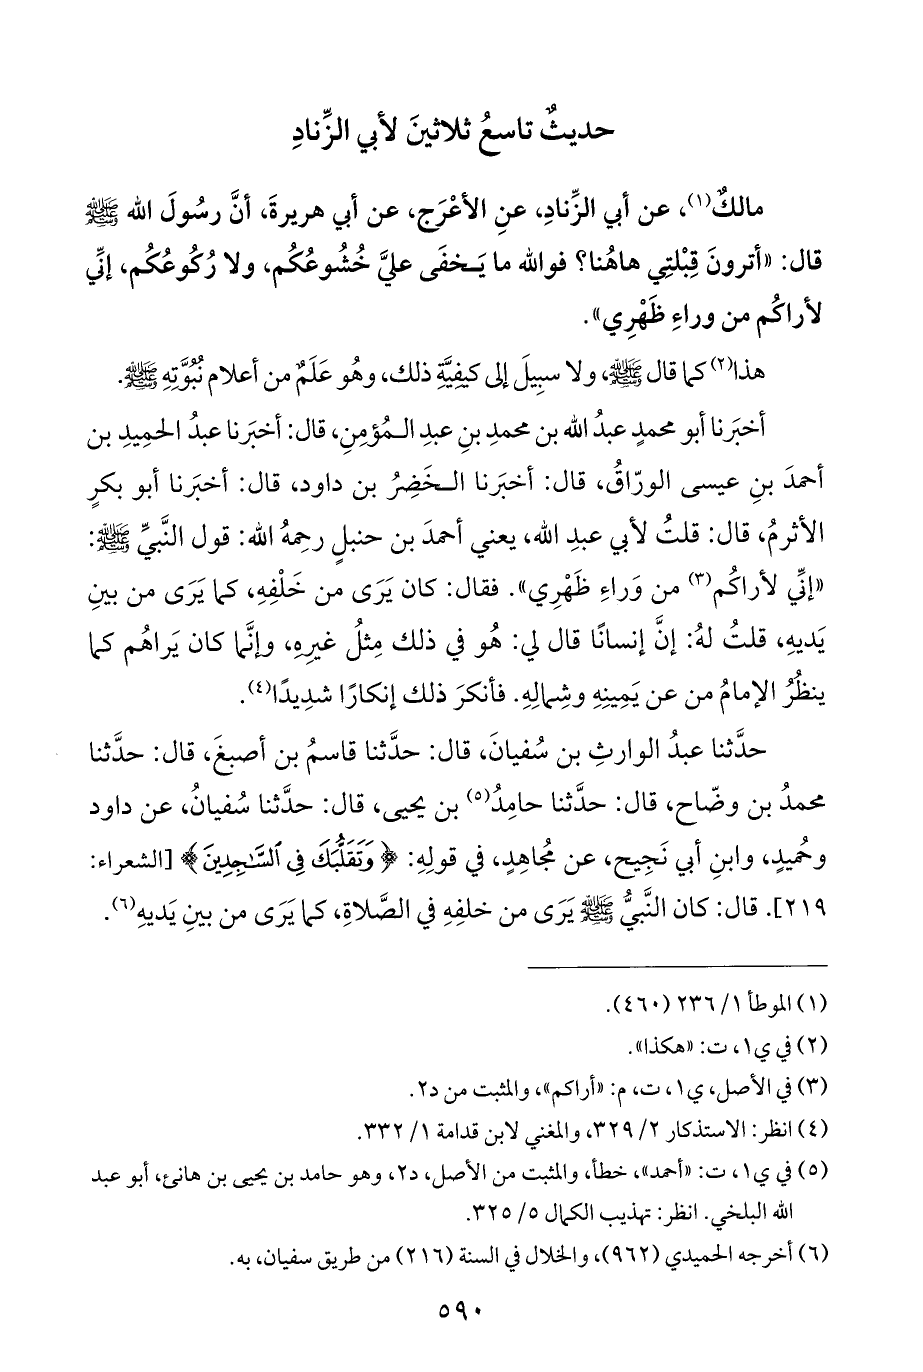 حديثٌ تاسعُ ثلاثينَ لأبي الزِّنادِ
مالكٌ(١)، عن أبي الزِّنادِ، عنِ الأعْرَجِ، عن أبي هريرةَ، أنَّ رسُولَ الله ﷺ
قال: «أترونَ قِبْلتِي هاهُنا؟ فوالله ما يَـخفَى عليَّ خُشُوعُكُم، ولا رُكُوعُكُم، إنِّي
لأراكُم من وراءِ ظَهْرِي».
هذا(٢) كما قال ﷺ، ولا سبِيلَ إلى كيفِيَّةِ ذلك، وهُو عَلَمٌ من أعلام نُبُوَّتِهِ ﷺ.
أخبَرنا أبو محمدٍ عبدُ الله بن محمدِ بنِ عبدِ الـمُؤمِنِ، قال: أخبَرنا عبدُ الحمِيدِ بن
أحمدَ بنِ عيسى الورّاقُ، قال: أخبَرنا الـخَضِرُ بن داود، قال: أخبَرنا أبو بكرٍ
الأثرمُ، قال: قلتُ لأبي عبدِ الله، يعني أحمدَ بن حنبلٍ رحِمهُ الله: قول النَّبيِّ ﷺ:
«إنِّي لأراكُم(٣) من وَراءِ ظَهْرِي». فقال: كان يَرَى من خَلْفِهِ، كما يَرَى من بينِ
يَديهِ، قلتُ لهُ: إنَّ إنسانًا قال لي: هُو في ذلك مِثلُ غيرِهِ، وإنَّما كان يَراهُم كما
ينظُرُ الإمامُ من عن يَمِينِهِ وشِمالِهِ. فأنكرَ ذلك إنكارًا شدِيدًا(٤).
حدَّثنا عبدُ الوارثِ بن سُفيانَ، قال: حدَّثنا قاسمُ بن أصبغَ، قال: حدَّثنا
محمدُ بن وضّاح، قال: حدَّثنا حامِدُ(٥) بن يحيى، قال: حدَّثنا سُفيانُ، عن داود
وحُميدٍ، وابنِ أبي نَجِيح، عن مُجاهِدٍ، في قولِهِ: ﴿وَتَقَلُّبَكَ فِي ٱلسَّـٰجِدِينَ﴾ [الشعراء:
٢١٩]. قال: كان النَّبيُّ ﷺ يَرَى من خلفِهِ في الصَّلاةِ، كما يَرَى من بينِ يَديهِ(٦).
(١) الموطأ ١/ ٢٣٦ (٤٦٠).
(٢) في ي١، ت: «هكذا».
(٣) في الأصل، ي١، ت، م: «أراكم»، والمثبت من د٢.
(٤) انظر: الاستذكار ٢/ ٣٢٩، والمغني لابن قدامة ١/ ٣٣٢.
(٥) في ي١، ت: «أحمد»، خطأ، والمثبت من الأصل، د٢، وهو حامد بن يحيى بن هانئ، أبو عبد
الله البلخي. انظر: تهذيب الكمال ٥/ ٣٢٥.
(٦) أخرجه الحميدي (٩٦٢)، والخلال في السنة (٢١٦) من طريق سفيان، به.
٥٩٠